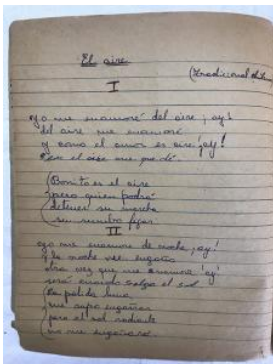 El aire
(Tradicional
I
Yo me enamoré del aire ¡ay!
del aire me enamoré
y como el amor es aire ¡ay!
en el aire me quedé.
(Bonito es el aire
pero quien podrá
detener su marcha
su rumbo fijar.
II
Yo me enamore de noche ¡ay!
y la noche me engaño
otra vez que me enamore ¡ay!
será cuando salga el sol
La pálida luna
me supo engañar
pero el sol radiante
no me engañará.